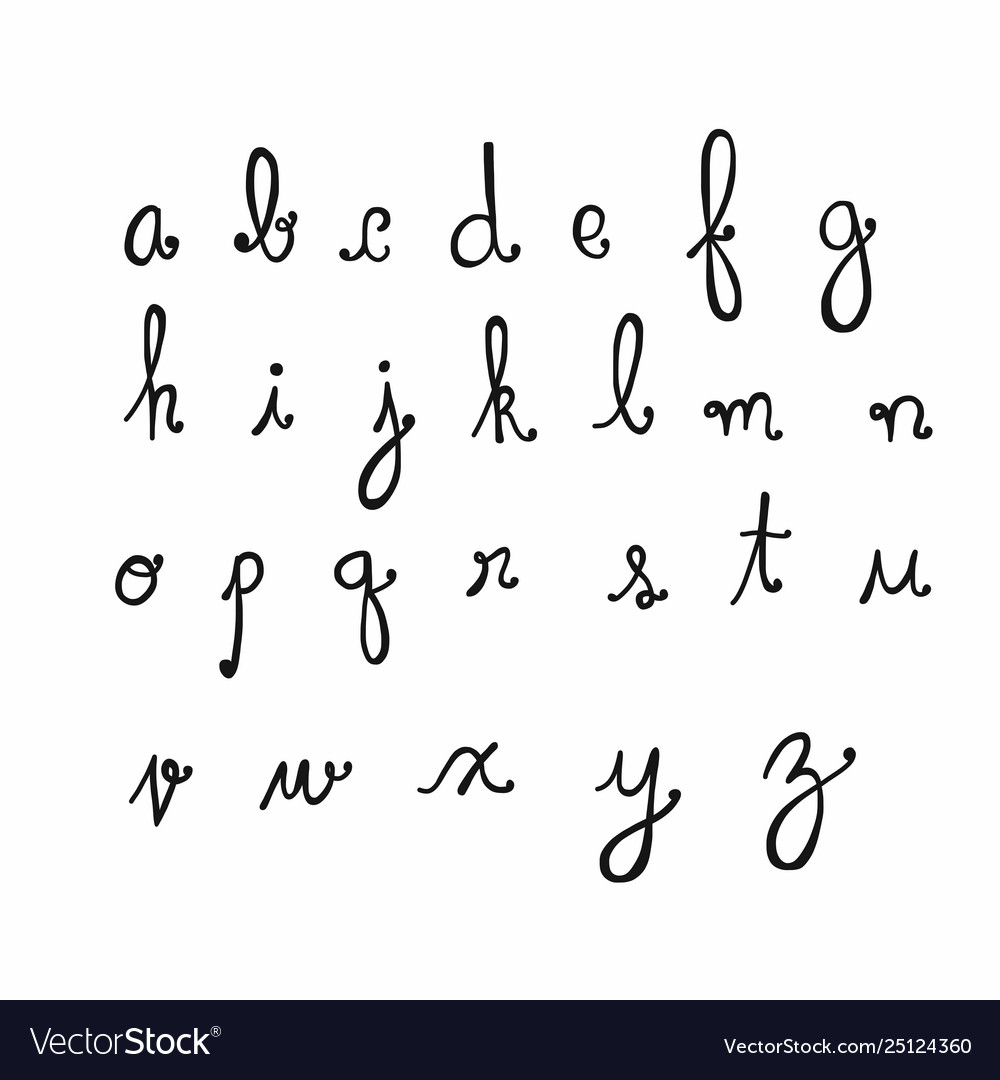 a b c d e f g
h i j k l m n
o p q r s t u
v w x y z
VectorStock® VectorStock.com/25124360